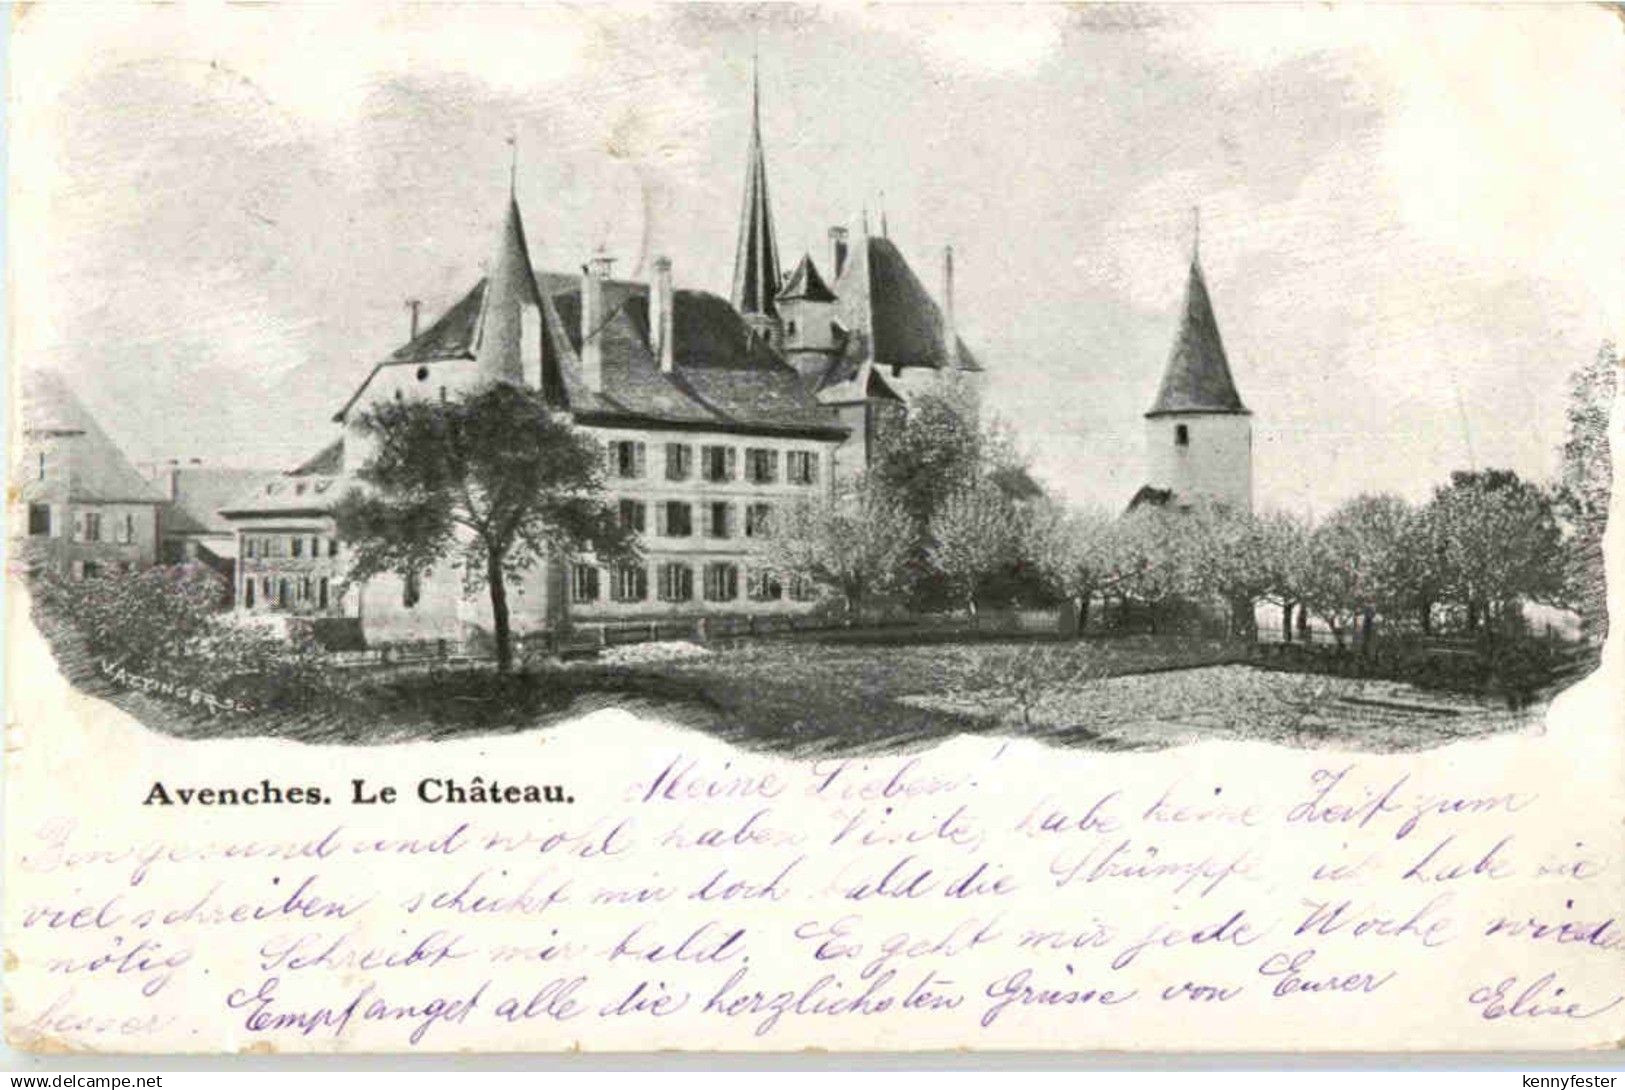 ATTINGER SC.
Avenches. Le Château. Meine Lieben!
Bin gesund und wohl haben Visite, habe keine Zeit zum
viel schreiben schickt mir doch bald die Strümpfe, ich habe sie
nötig. Schreibt mir bald. Es geht mir jede Woche wieder
besser. Empfanget alle die herzlichsten Grüsse von Eurer Elise
delcampe.net
kennyfester